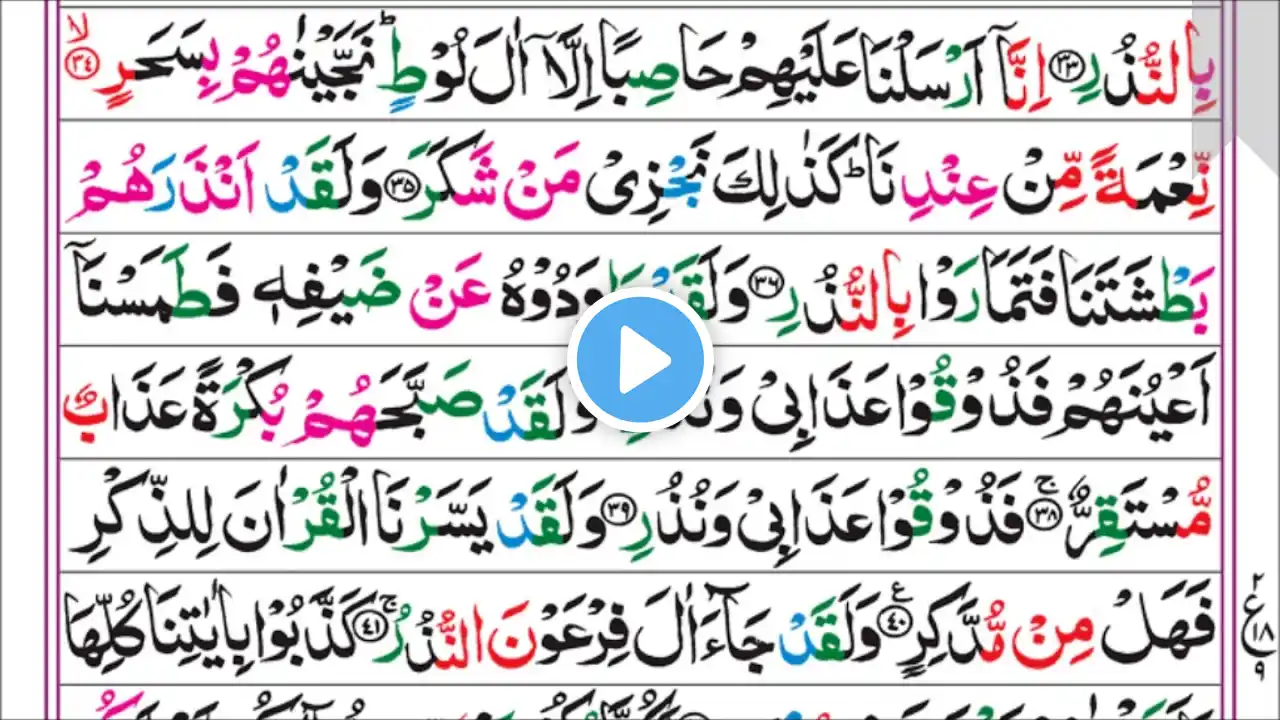 بِالنُّذُرِ ﴿٣٣﴾ اِنَّاۤ اَرْسَلْنَا عَلَيْهِمْ حَاصِبًا اِلَّاۤ اٰلَ لُوْطٍ ؕ نَجَّيْنٰهُمْ بِسَحَرٍ ﴿٣٤﴾ ۙ
نِّعْمَةً مِّنْ عِنْدِنَا ؕ كَذٰلِكَ نَجْزِىْ مَنْ شَكَرَ ﴿٣٥﴾ وَلَقَدْ اَنْذَرَهُمْ
بَطْشَتَنَا فَتَمَارَوْا بِالنُّذُرِ ﴿٣٦﴾ وَلَقَدْ عَنْ ضَيْفِهٖ فَطَمَسْنَاۤ
اَعْيُنَهُمْ فَذُوْقُوْا عَذَابِىْ وَلَقَدْ صَبَّحَهُمْ بُكْرَةً عَذَابٌ
مُّسْتَقِرٌّ ﴿٣٨﴾ ۚ فَذُوْقُوْا عَذَابِىْ وَنُذُرِ ﴿٣٩﴾ وَلَقَدْ يَسَّرْنَا الْقُرْاٰنَ لِلذِّكْرِ
فَهَلْ مِنْ مُّدَّكِرٍ ﴿٤٠﴾ ع وَلَقَدْ جَآءَ اٰلَ فِرْعَوْنَ النُّذُرُ ﴿٤١﴾ ۚ كَذَّبُوْا بِاٰيٰتِنَا كُلِّهَا
٢
ع
١٨
٩